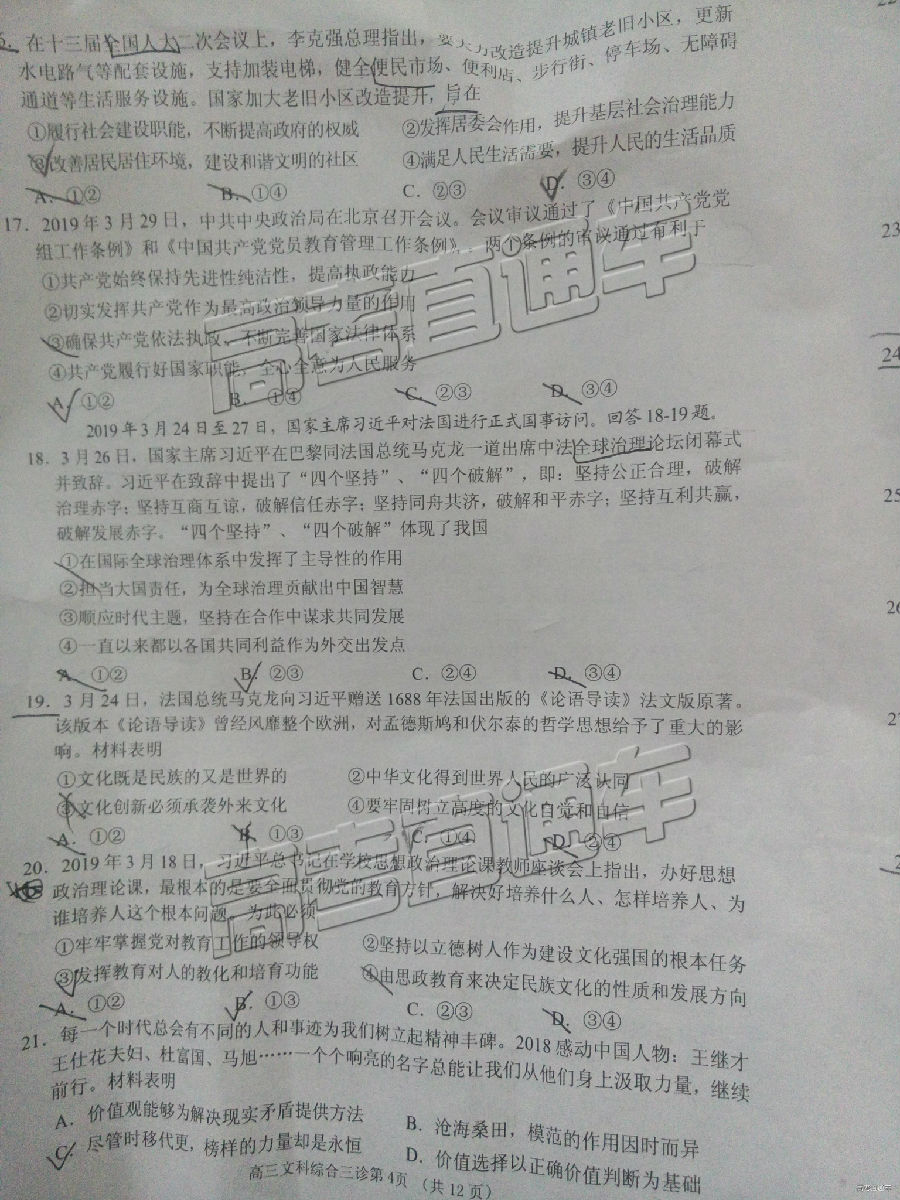 在十三届全国人大二次会议上，李克强总理指出，要大力改造提升城镇老旧小区，更新
水电路气等配套设施，支持加装电梯，健全便民市场、便利店、步行街、停车场、无障碍
通道等生活服务设施。国家加大老旧小区改造提升，旨在
①履行社会建设职能，不断提高政府的权威 ②发挥居委会作用，提升基层社会治理能力
③改善居民居住环境，建设和谐文明的社区 ④满足人民生活需要，提升人民的生活品质
A．①② B．①④ C．②③ D．③④
17．2019年3月29日，中共中央政治局在北京召开会议。会议审议通过了《中国共产党党
组工作条例》和《中国共产党党员教育管理工作条例》。两个条例的审议通过有利于
①共产党始终保持先进性纯洁性，提高执政能力
②切实发挥共产党作为最高政治领导力量的作用
③确保共产党依法执政、不断完善国家法律体系
④共产党履行好国家职能，全心全意为人民服务
A．①② B．①④ C．②③ D．③④
2019年3月24日至27日，国家主席习近平对法国进行正式国事访问。回答18-19题。
18．3月26日，国家主席习近平在巴黎同法国总统马克龙一道出席中法全球治理论坛闭幕式
并致辞。习近平在致辞中提出了“四个坚持”、“四个破解”，即：坚持公正合理，破解
治理赤字；坚持互商互谅，破解信任赤字；坚持同舟共济，破解和平赤字；坚持互利共赢，
破解发展赤字。“四个坚持”、“四个破解”体现了我国
①在国际全球治理体系中发挥了主导性的作用
②担当大国责任，为全球治理贡献出中国智慧
③顺应时代主题，坚持在合作中谋求共同发展
④一直以来都以各国共同利益作为外交出发点
A．①② B．②③ C．②④ D．③④
19．3月24日，法国总统马克龙向习近平赠送1688年法国出版的《论语导读》法文版原著。
该版本《论语导读》曾经风靡整个欧洲，对孟德斯鸠和伏尔泰的哲学思想给予了重大的影
响。材料表明
①文化既是民族的又是世界的 ②中华文化得到世界人民的广泛认同
③文化创新必须承袭外来文化 ④要牢固树立高度的文化自觉和自信
A．①② B．①③ C．①④ D．②④
20．2019年3月18日，习近平总书记在学校思想政治理论课教师座谈会上指出，办好思想
政治理论课，最根本的是要全面贯彻党的教育方针，解决好培养什么人、怎样培养人、为
谁培养人这个根本问题。为此必须
①牢牢掌握党对教育工作的领导权 ②坚持以立德树人作为建设文化强国的根本任务
③发挥教育对人的教化和培育功能 ④由思政教育来决定民族文化的性质和发展方向
A．①② B．①③ C．②③ D．③④
21．每一个时代总会有不同的人和事迹为我们树立起精神丰碑。2018感动中国人物：王继才
王仕花夫妇、杜富国、马旭……一个个响亮的名字总能让我们从他们身上汲取力量，继续
前行。材料表明
A．价值观能够为解决现实矛盾提供方法 B．沧海桑田，模范的作用因时而异
C．尽管时移代更，榜样的力量却是永恒 D．价值选择以正确价值判断为基础
高三文科综合三诊第4页 （共12页）
高考直通车
高考直通车
23
24
25
26
27